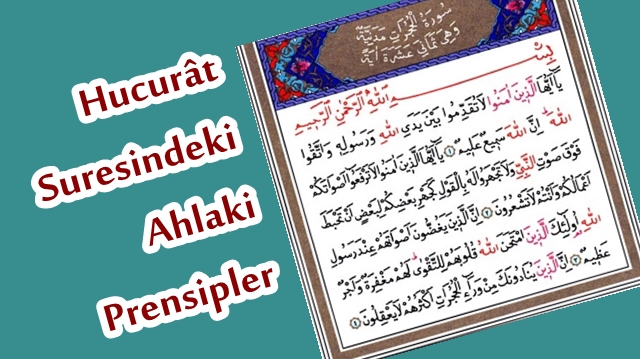 Hucurât
Suresindeki
Ahlaki
Prensipler
سُورَةُ الْحُجُرَاتِ مَدَنِيَّةٌ
وَهِيَ ثَمَانِيَ عَشْرَةَ اٰيَةً
بِسْمِ اللّٰهِ الرَّحْمٰنِ الرَّحِيمِ
يَٓا اَيُّهَا الَّذِينَ اٰمَنُوا لَا تُقَدِّمُوا بَيْنَ يَدَيِ اللّٰهِ وَرَسُولِهِ وَاتَّقُوا
اللّٰهَ اِنَّ اللّٰهَ سَمِيعٌ عَلِيمٌ ﴿١﴾ يَٓا اَيُّهَا الَّذِينَ اٰمَنُوا لَا تَرْفَعُٓوا اَصْوَاتَكُمْ
فَوْقَ صَوْتِ النَّبِيِّ وَلَا تَجْهَرُوا لَهُ بِالْقَوْلِ كَجَهْرِ بَعْضِكُمْ لِبَعْضٍ اَنْ تَحْبَطَ
اَعْمَالُكُمْ وَاَنْتُمْ لَا تَشْعُرُونَ ﴿٢﴾ اِنَّ الَّذِينَ يَغُضُّونَ اَصْوَاتَهُمْ عِنْدَ رَسُولِ
اللّٰهِ اُو۬لٰٓئِكَ الَّذِينَ امْتَحَنَ اللّٰهُ قُلُوبَهُمْ لِلتَّقْوٰى لَهُمْ مَغْفِرَةٌ وَاَجْرٌ
عَظِيمٌ ﴿٣﴾ اِنَّ الَّذِينَ يُنَادُونَكَ مِنْ وَرَٓاءِ الْحُجُرَاتِ اَكْثَرُهُمْ لَا يَعْقِلُونَ ﴿٤﴾